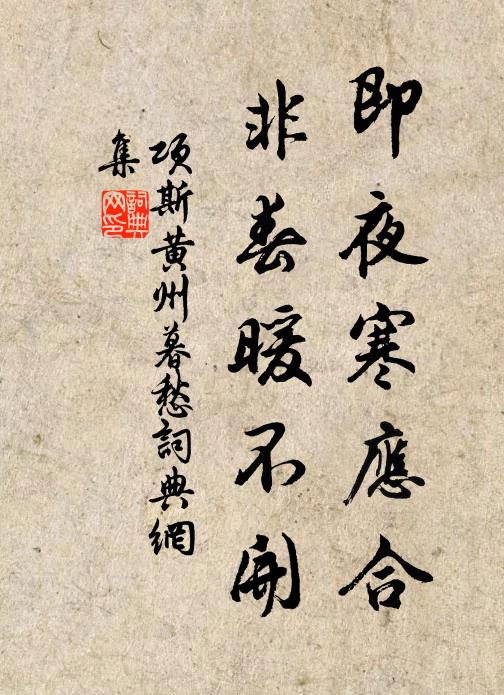 即夜寒應合
非春暖不開
項斯黄州暮愁詞典網
集
詞典
网印